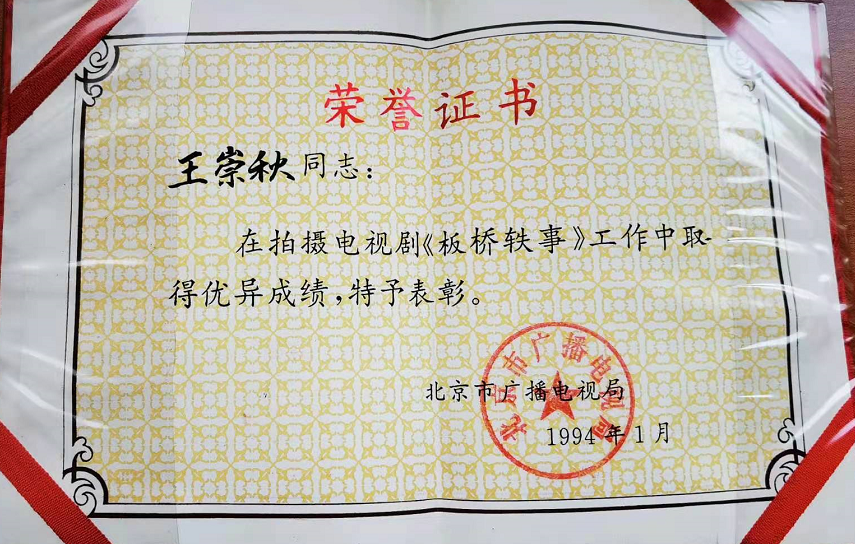 荣誉证书
王崇秋同志：
在拍摄电视剧《板桥轶事》工作中取
得优异成绩，特予表彰。
北京市广播电视局
1994年1月
北京市广播电视局